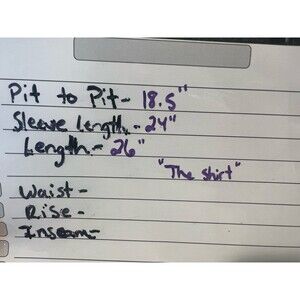 Pit to Pit- 18.5"
Sleeve Length- 24"
Length- 26"
"The shirt"
Waist-
Rise-
Inseam-